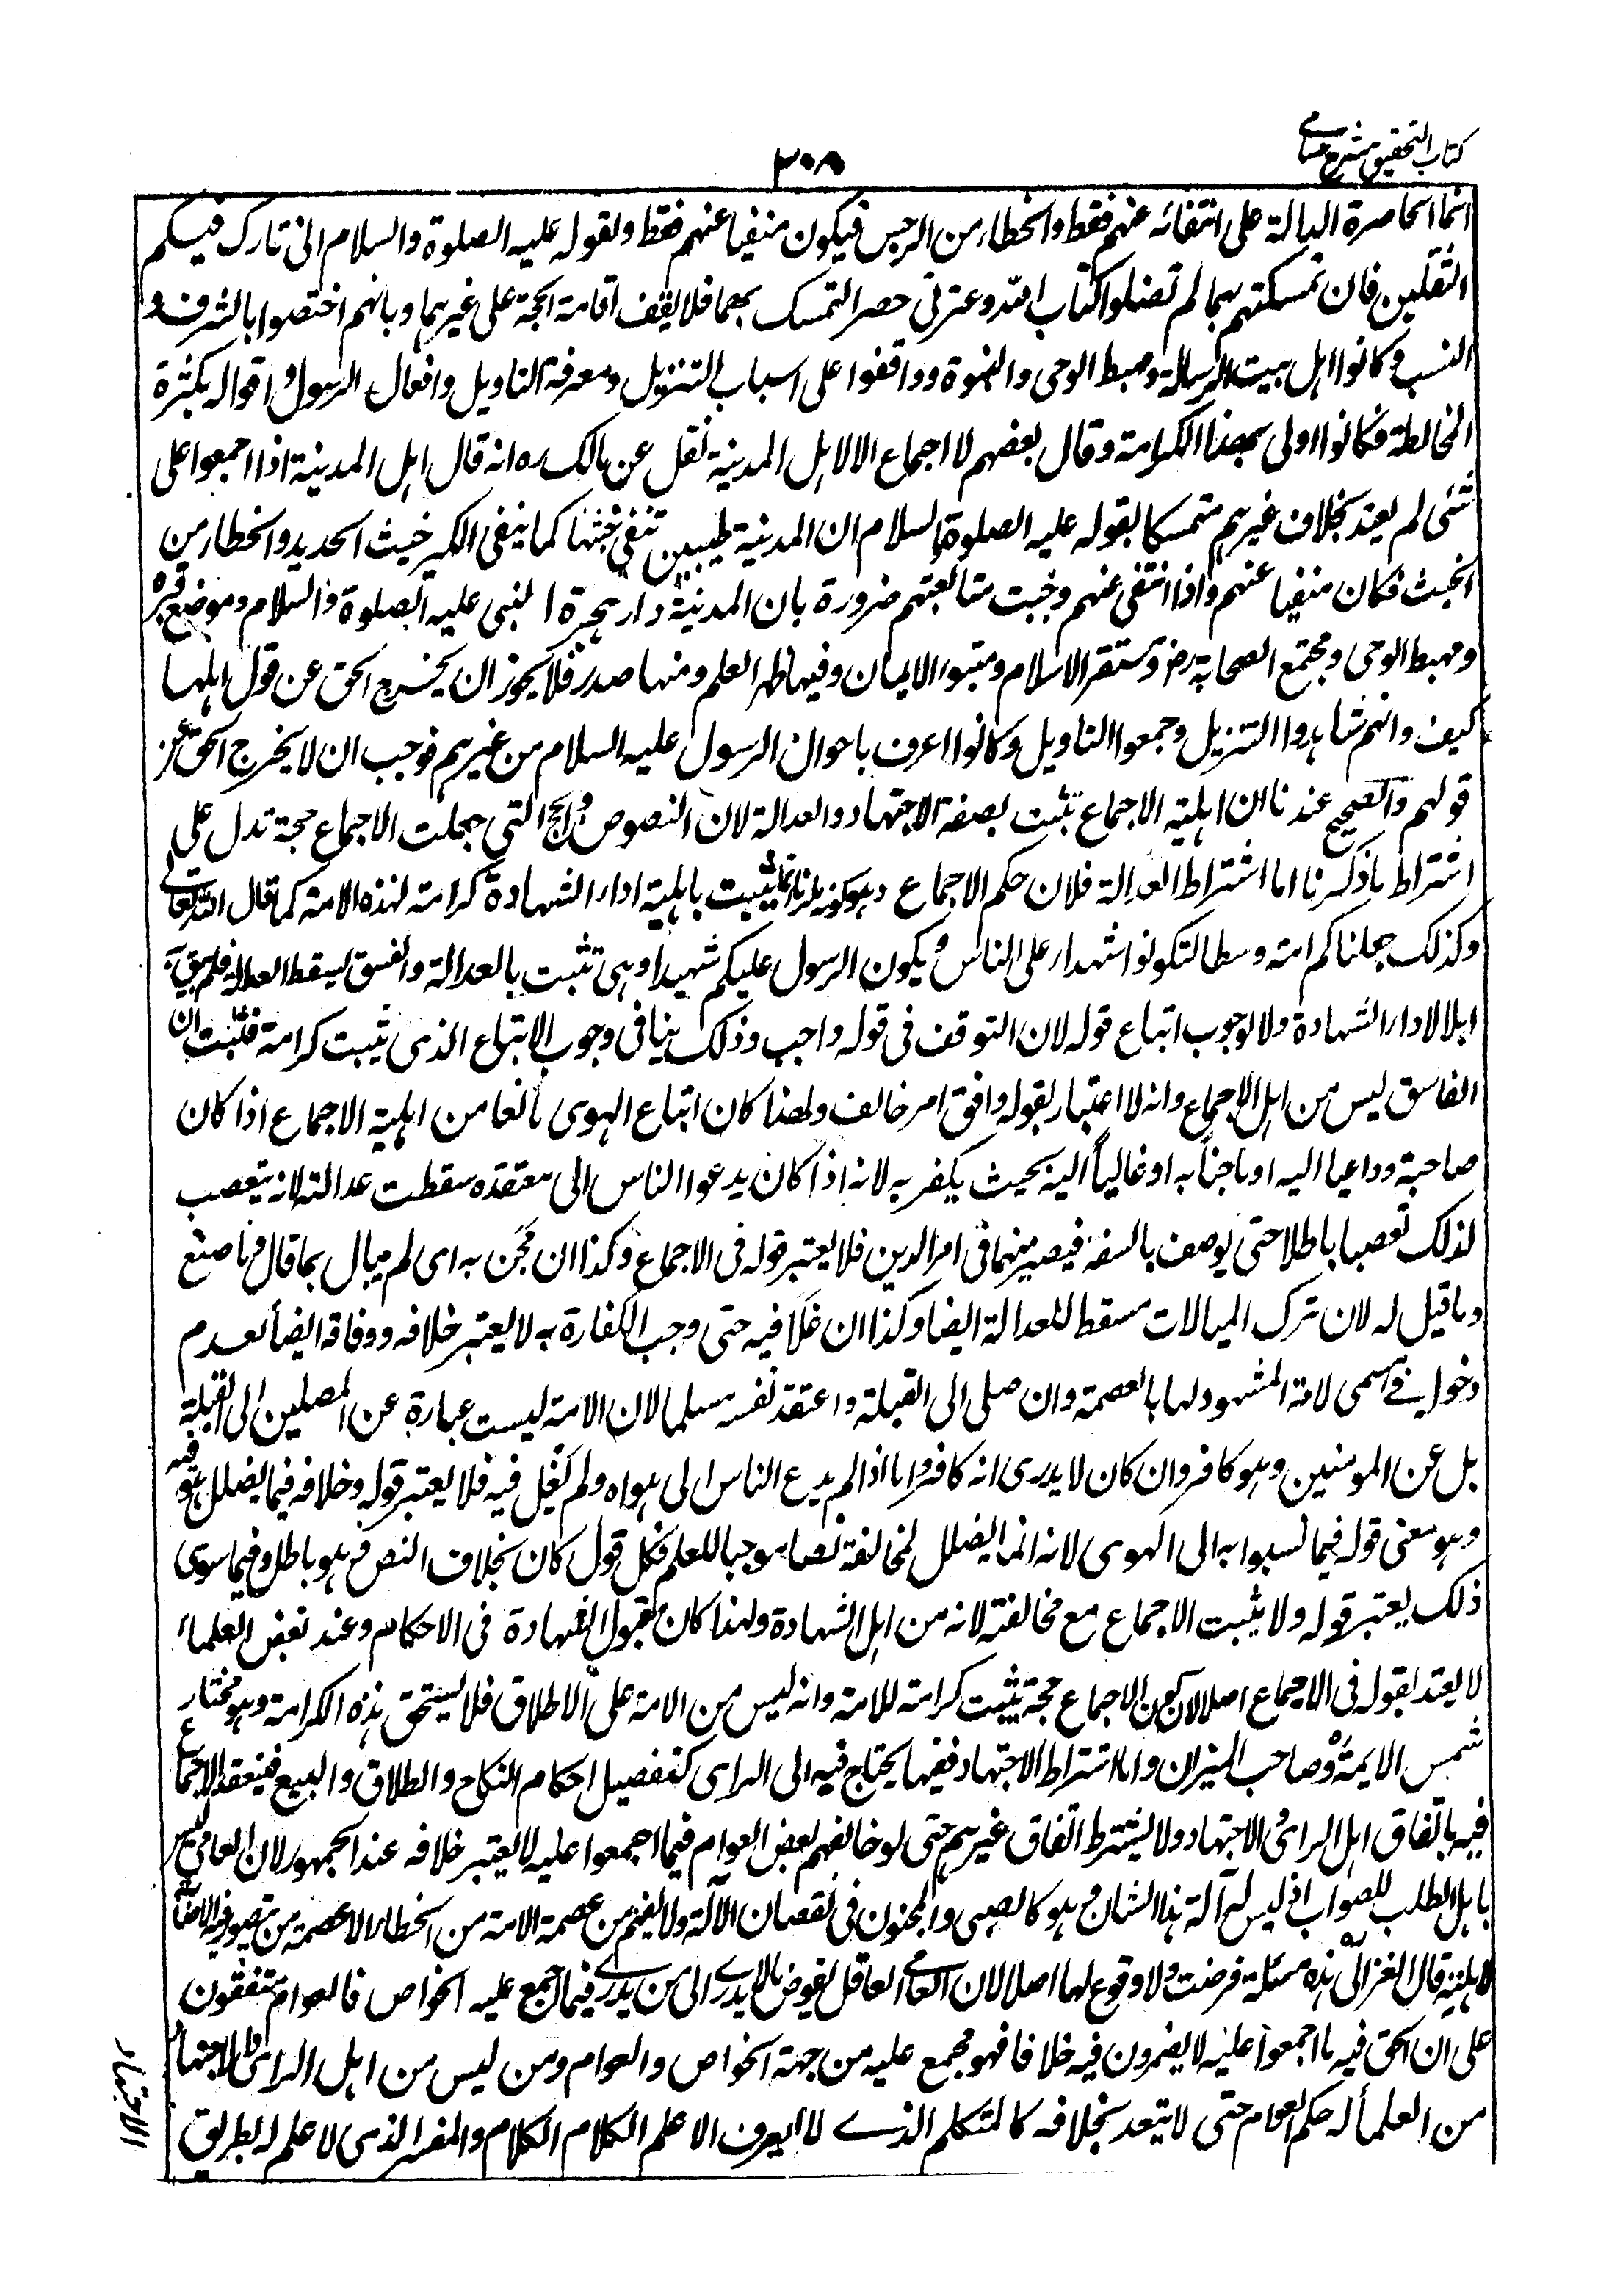 كتاب التحقيق شرح حسامى
٣٠٨
انما الحاصرة الدالة على انتفائه عنهم فقط والخطاء من الرجس فيكون منفيا عنهم فقط ولقوله عليه الصلوة والسلام انى تارك فيكم
الثقلين فان تمسكتم بهما لم تضلوا كتاب الله وعترتى حصر التمسك بهما فلا يقف اقامة الحجة على غيرهما وبانهم اختصوا بالشرف و
النسب وكانوا اهل بيت الرسالة ومهبط الوحى والنبوة ووقفوا على اسباب التنزيل ومعرفة التاويل وافعال الرسول واقواله بكثرة
المخالطة فكانوا اولى بهذا الكرامة وقال بعضهم لا اجماع الا لاهل المدينة نقل عن مالك ره انه قال اهل المدينة اذا اجمعوا على
شئى لم يعتد بخلاف غيرهم متمسكا بقوله عليه الصلوة والسلام ان المدينة طيبة تنفى خبثها كما ينفى الكير خبث الحديد والخطاء من
الخبث فكان منفيا عنهم واذا انتفى عنهم وجبت متابعتهم ضرورة بان المدينة دار هجرة النبى عليه الصلوة والسلام وموضع قبره
ومهبط الوحى ومجتمع الصحابة رض ومستقر الاسلام ومتبوء الايمان وفيها ظهر العلم ومنها صدر فلا يجوز ان يخرج الحق عن قول اهلها
كيف وانهم شاهدوا التنزيل وجمعوا التاويل وكانوا اعرف باحوال الرسول عليه السلام من غيرهم فوجب ان لا يخرج الحق عن
قولهم والصحيح عندنا ان اهلية الاجماع تثبت بصفة الاجتهاد والعدالة لان النصوص والحجج التى جعلت الاجماع حجة تدل على
اشتراط ما ذكرنا اما اشتراط العدالة فلان حكم الاجماع وهو كونه ملزما انما يثبت باهلية اداء الشهادة كرامة لهذه الامة كما قال الله تعالى
وكذلك جعلناكم امة وسطا لتكونوا شهداء على الناس ويكون الرسول عليكم شهيدا وهى تثبت بالعدالة والفسق يسقط العدالة فلم يبق به
اهلا لاداء الشهادة ولا لوجوب اتباع قوله لان التوقف فى قوله واجب وذلك ينافى وجوب الاتباع الذى يثبت كرامة فثبت ان
الفاسق ليس من اهل الاجماع وانه لا اعتبار لقوله وافق ام خالف ولهذا كان اتباع الهوى مانعا من اهلية الاجماع اذا كان
صاحبة وداعيا اليه او ماجنا به او غاليا اليه بحيث يكفر به لانه اذا كان يدعوا الناس الى معتقده سقطت عدالته لانه يتعصب
لذلك تعصبا باطلا حتى يوصف بالسفه فيصير متهما فى امر الدين فلا يعتبر قوله فى الاجماع وكذا ان مجن به اى لم يبال بما قال وما صنع
وما قيل له لان ترك المبالات مسقط للعدالة ايضا وكذا ان غلا فيه حتى وجب الكفارة به لا يعتبر خلافه ووفاقه ايضا لعدم
دخوله فى مسمى لامة المشهود لها بالعصمة وان صلى الى القبلة واعتقد نفسه مسلما لان الامة ليست عبارة عن المصلين الى القبلة
بل عن المومنين وهو كافر وان كان لا يدرى انه كافر واما اذا لم يدع الناس الى هواه ولم يغل فيه فلا يعتبر قوله وخلافه فيما يضلل هو فيه
وهو معنى قوله فيما نسبوا به الى الهوى لانه انما يضلل لمخالفة نصا موجبا للعلم فكل قول كان بخلاف النص فهو باطل وفيما سوى
ذلك يعتبر قوله ولا يثبت الاجماع مع مخالفته لانه من اهل الشهادة ولهذا كان مقبول الشهادة فى الاحكام وعند بعض العلماء
لا يعتد بقوله فى الاجماع اصلا لان كون الاجماع حجة يثبت كرامة للامة وانه ليس من الامة على الاطلاق فلا يستحق هذه الكرامة وهو مختار
شمس الايمة وصاحب الميزان واما اشتراط الاجتهاد ففيما يحتاج فيه الى الراى كتفصيل احكام النكاح والطلاق والبيع فينعقد الاجماع
فيه باتفاق اهل الراى والاجتهاد ولا يشترط اتفاق غيرهم حتى لو خالفهم بعض العوام فيما اجمعوا عليه لا يعتبر خلافه عند الجمهور لان العامى ليس
باهل لطلب للصواب اذ ليس له آلة هذا الشان وهو كالصبى والمجنون فى نقصان الآلة ولا يفهم من عصمة الامة من الخطاء الا عصمة من يتصور فيه الاصابة
لاهليته قال الغزالى ره هذه مسئلة فرضت ولا وقوع لها اصلا لان العامى العاقل يفوض ما لا يدرى الى من يدرى فيما اجمع عليه الخواص فالعوام متفقون
على ان الحق فيه ما اجمعوا عليه لا يضمرون فيه خلافا فهو مجمع عليه من جهة الخواص والعوام ومن ليس من اهل الراى والاجتهاد
من العلماء له حكم العوام حتى لا يعتد بخلافه كالمتكلم الذے لا يعرف الا علم الكلام والمفسر الذى لا علم له بطريق
الاجتهاد